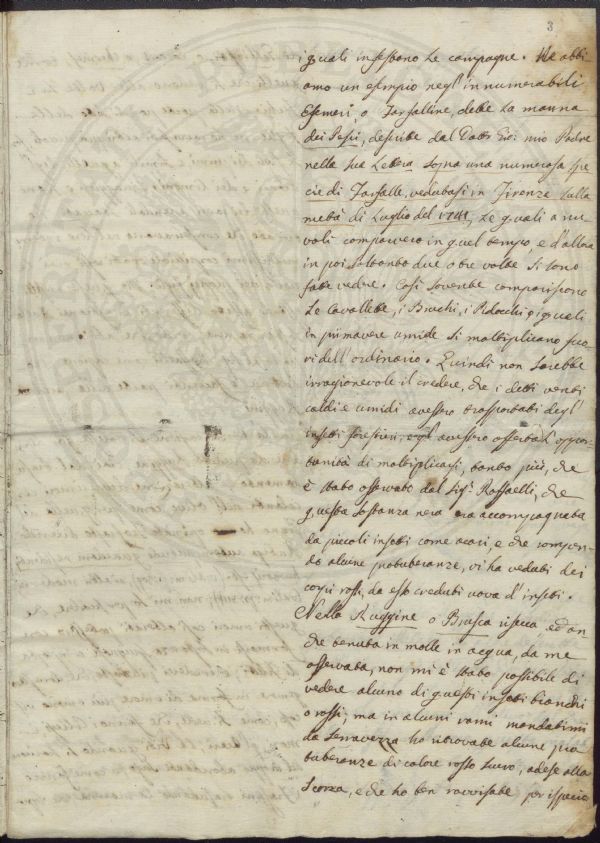 3
i quali infestano le campagne. Ne abbi-
amo un esempio negl'innumerabili
Efemeri, o Farfalline, dette la manna
dei Pesci, descritte dal Dottr Gio: mio Padre
nella sua Lettera sopra una numerosa spe
cie di Farfalle, vedutasi in Firenze sulla
metà di Luglio del 1741, le quali a nu
voli comparvero in quel tempo, e d'allora
in poi soltanto due o tre volte si sono
fatte vedere. Così sovente compariscono
le Cavallette, i Bruchi, i Pidocchi &, i quali
in primavere umide si moltiplicano fuo-
ri dell'ordinario. Quindi non sarebbe
irragionevole il credere, che i detti venti
caldi e umidi avessero trasportati degl'
insetti forestieri, o gl'avessero offerta l'oppor-
tunità di moltiplicarsi, tanto più, che
è stato osservato dal Sigr. Raffaelli, che
questa sostanza nera era accompagnata
da piccoli insetti come acari, e che rompen-
do alcune protuberanze, vi ha veduti dei
corpi rossi, da esso creduti uova d'insetti.
Nella Ruggine o Brusca secca, ed an
che tenuta in molle in acqua, da me
osservata, non mi è stato possibile di
vedere alcuno di questi insetti bianchi
o rossi; ma in alcuni rami mandatimi
da Seravezza ho ritrovate alcune pro
tuberanze di colore rosso scuro, adese alla
Scorza, e che ho ben ravvisate per ispecie